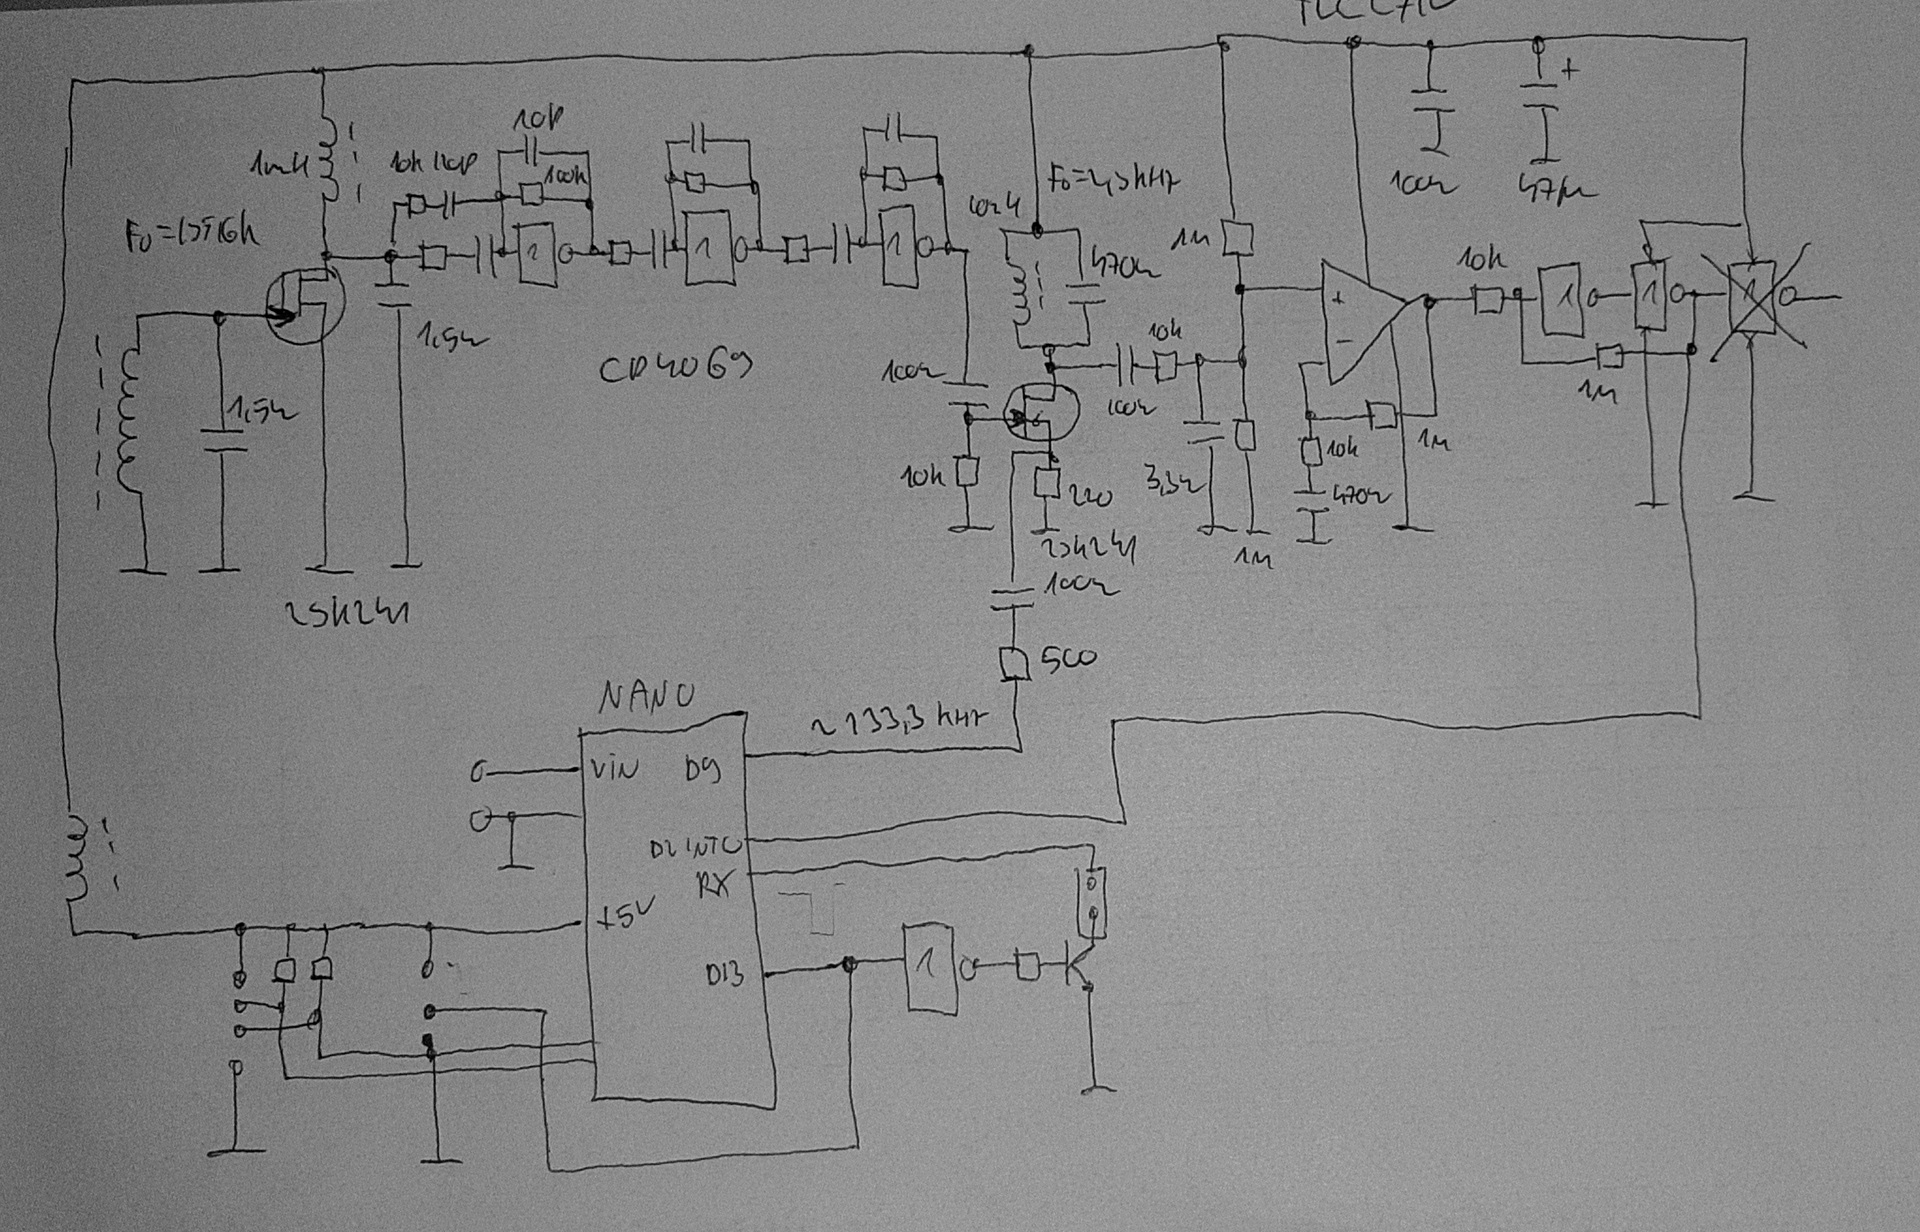 10p
1mH
10k
100k
1
1
1
1,5n
1,5n
CD4069
2SK241
470n
100n
10k
220
2SK241
100n
500
1M
10k
100n
3,3n
1M
+
-
10k
470n
1M
100n
+
47µ
10k
1
1
1
1M
NANO
~133,3 kHz
VIN
D9
D2 INT0
RX
+5V
D13
1